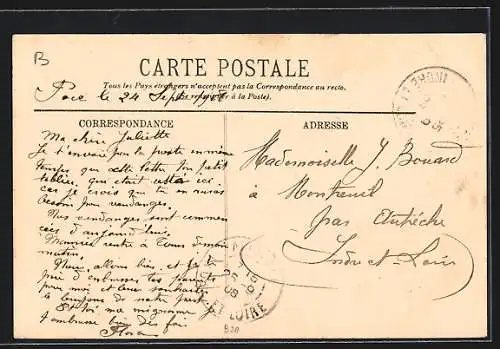 B
CARTE POSTALE
Tous les Pays étrangers n'acceptent pas la Correspondance au recto.
à la Poste).
Pocé le 24 Sept
CORRESPONDANCE
Ma chère Juliette
Je t'envoie par la poste en même
temps que cette lettre ton petit
tablier qui était resté ici
car je crois que tu en auras
besoin pour vendanger.
Nos vendanges sont commen
cées d'aujourd'hui.
rentre à Tours demain
matin.
Nous allons bien et je te
prie d'embrasser tes parents
pour moi et leur souhaiter
le bonjour de notre part
Et toi ma mignonne je
t'embrasse bien des fois
ADRESSE
Mademoiselle J. Bonard
à Montreuil
par Autrèche
Indre et Loire
INDRE
LOIRE